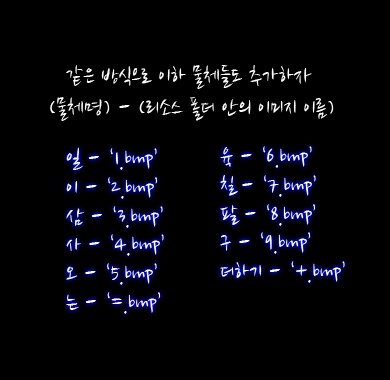 같은 방식으로 이하 물체들도 추가하자
(물체명) - (리소스 폴더 안의 이미지 이름)
일 - '1.bmp'
이 - '2.bmp'
삼 - '3.bmp'
사 - '4.bmp'
오 - '5.bmp'
는 - '=.bmp'
육 - '6.bmp'
칠 - '7.bmp'
팔 - '8.bmp'
구 - '9.bmp'
더하기 - '+.bmp'